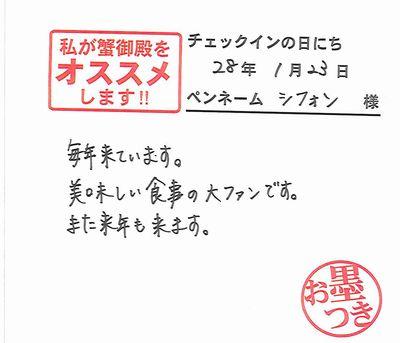 私が蟹御殿を
オススメ
します!!
チェックインの日にち
28年 1月23日
ペンネーム シフォン 様
毎年来ています。
美味しい食事の大ファンです。
また来年も来ます。
お墨つき